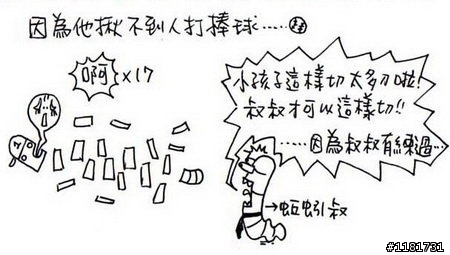 因為他揪不到人打棒球.....
啊 x17
小孩子這樣切太多刀啦!
叔叔才可以這樣切!!
.....因為叔叔有練過...
→蚯蚓叔
#1181731